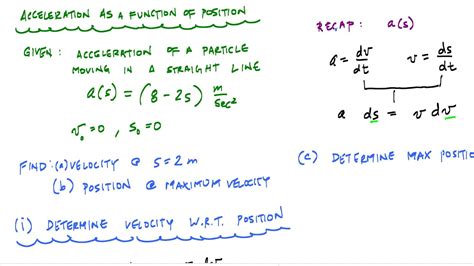 ACCELERATION AS A FUNCTION OF POSITION
GIVEN: ACCELERATION OF A PARTICLE
MOVING IN A STRAIGHT LINE
a(s) = (8 - 2s) m/sec²
v₀ = 0 , s₀ = 0
FIND: (a) VELOCITY @ s = 2 m
(b) POSITION @ MAXIMUM VELOCITY
(i) DETERMINE VELOCITY W.R.T. POSITION
RECAP: a(s)
a = dv/dt v = ds/dt
a ds = v dv
(c) DETERMINE MAX POSITIO